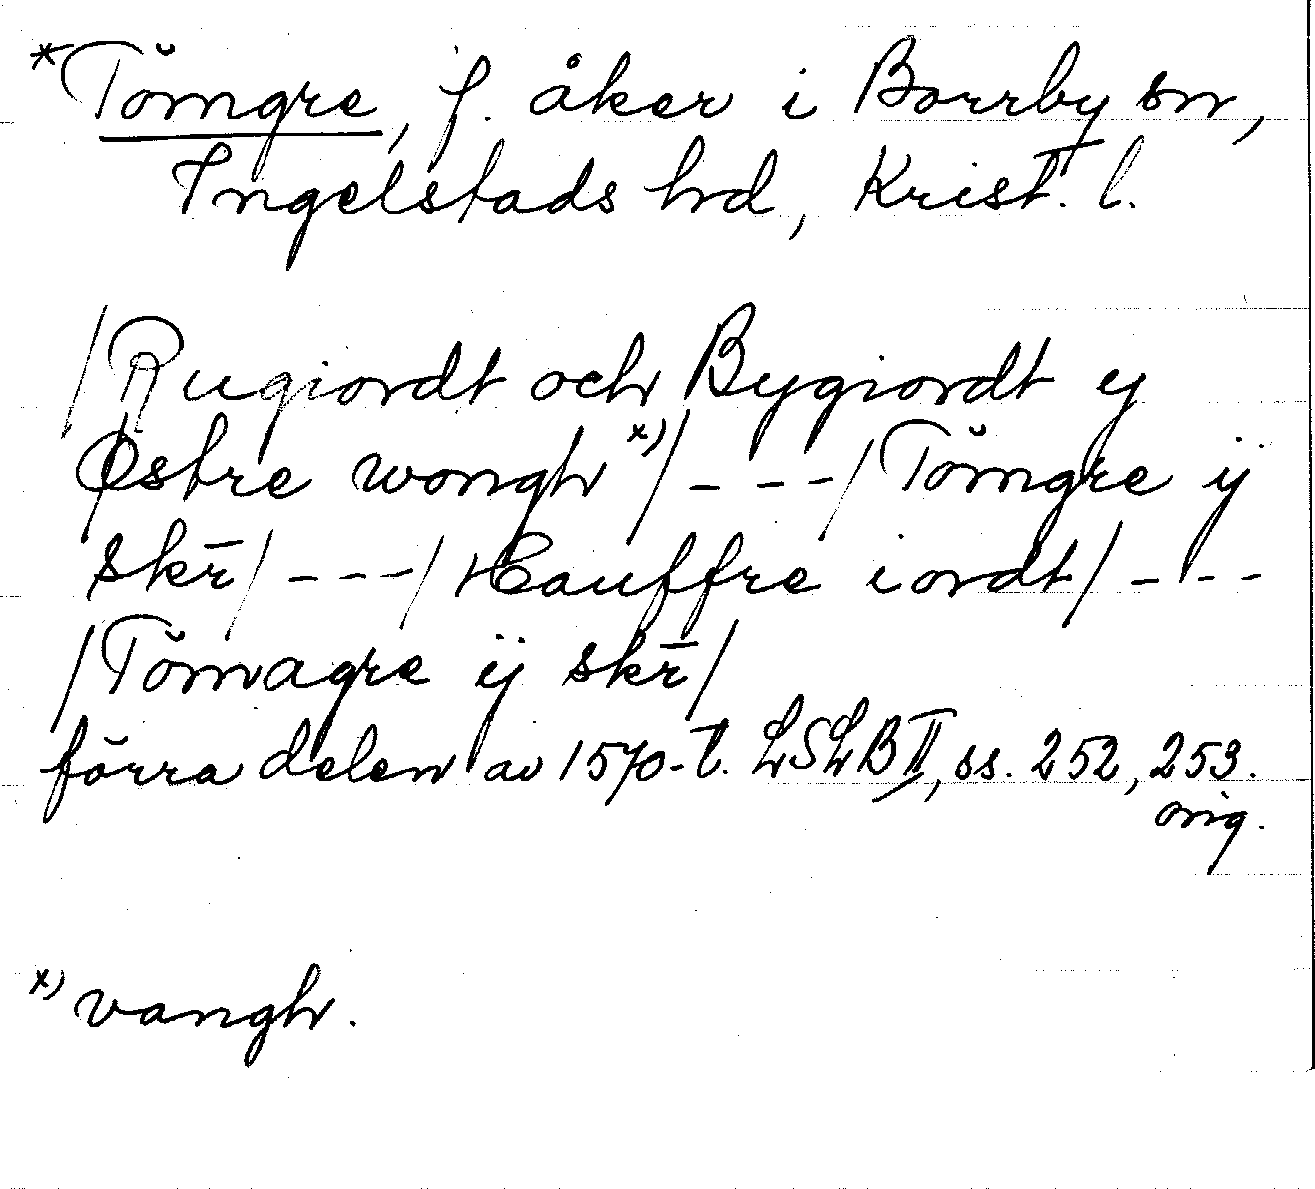 *Tŏmgre, f. åker i Borrby sn,
Ingelstads hd, Krist. l.
/Rugiordt och Bygiordt y
Østre wongh x)/ - - - /Tŏmgre ÿ
skr̄/ - - - /Hauffre iordt/ - - -
/Tŏmagre ÿ skr̄/
förra delen av 1570-t. LSLB II, ss. 252, 253.
orig.
x) vangh.